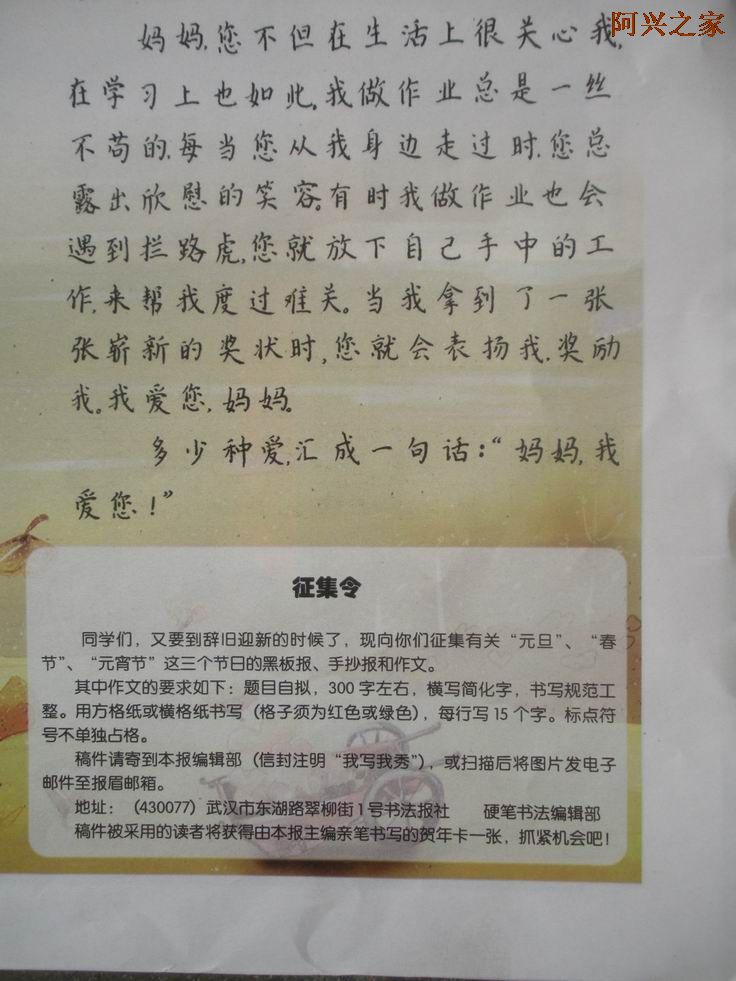 阿兴之家
妈妈,您不但在生活上很关心我,
在学习上也如此,我做作业总是一丝
不苟的,每当您从我身边走过时,您总
露出欣慰的笑容。有时我做作业也会
遇到拦路虎,您就放下自己手中的工
作,来帮我度过难关。当我拿到了一张
张崭新的奖状时,您就会表扬我,奖励
我。我爱您,妈妈。
多少种爱,汇成一句话:“妈妈,我
爱您!”
征集令
同学们，又要到辞旧迎新的时候了，现向你们征集有关“元旦”、“春
节”、“元宵节”这三个节日的黑板报、手抄报和作文。
其中作文的要求如下：题目自拟，300字左右，横写简化字，书写规范工
整。用方格纸或横格纸书写（格子须为红色或绿色），每行写15个字。标点符
号不单独占格。
稿件请寄到本报编辑部（信封注明“我写我秀”），或扫描后将图片发电子
邮件至报眉邮箱。
地址：（430077）武汉市东湖路翠柳街1号书法报社 硬笔书法编辑部
稿件被采用的读者将获得由本报主编亲笔书写的贺年卡一张，抓紧机会吧！